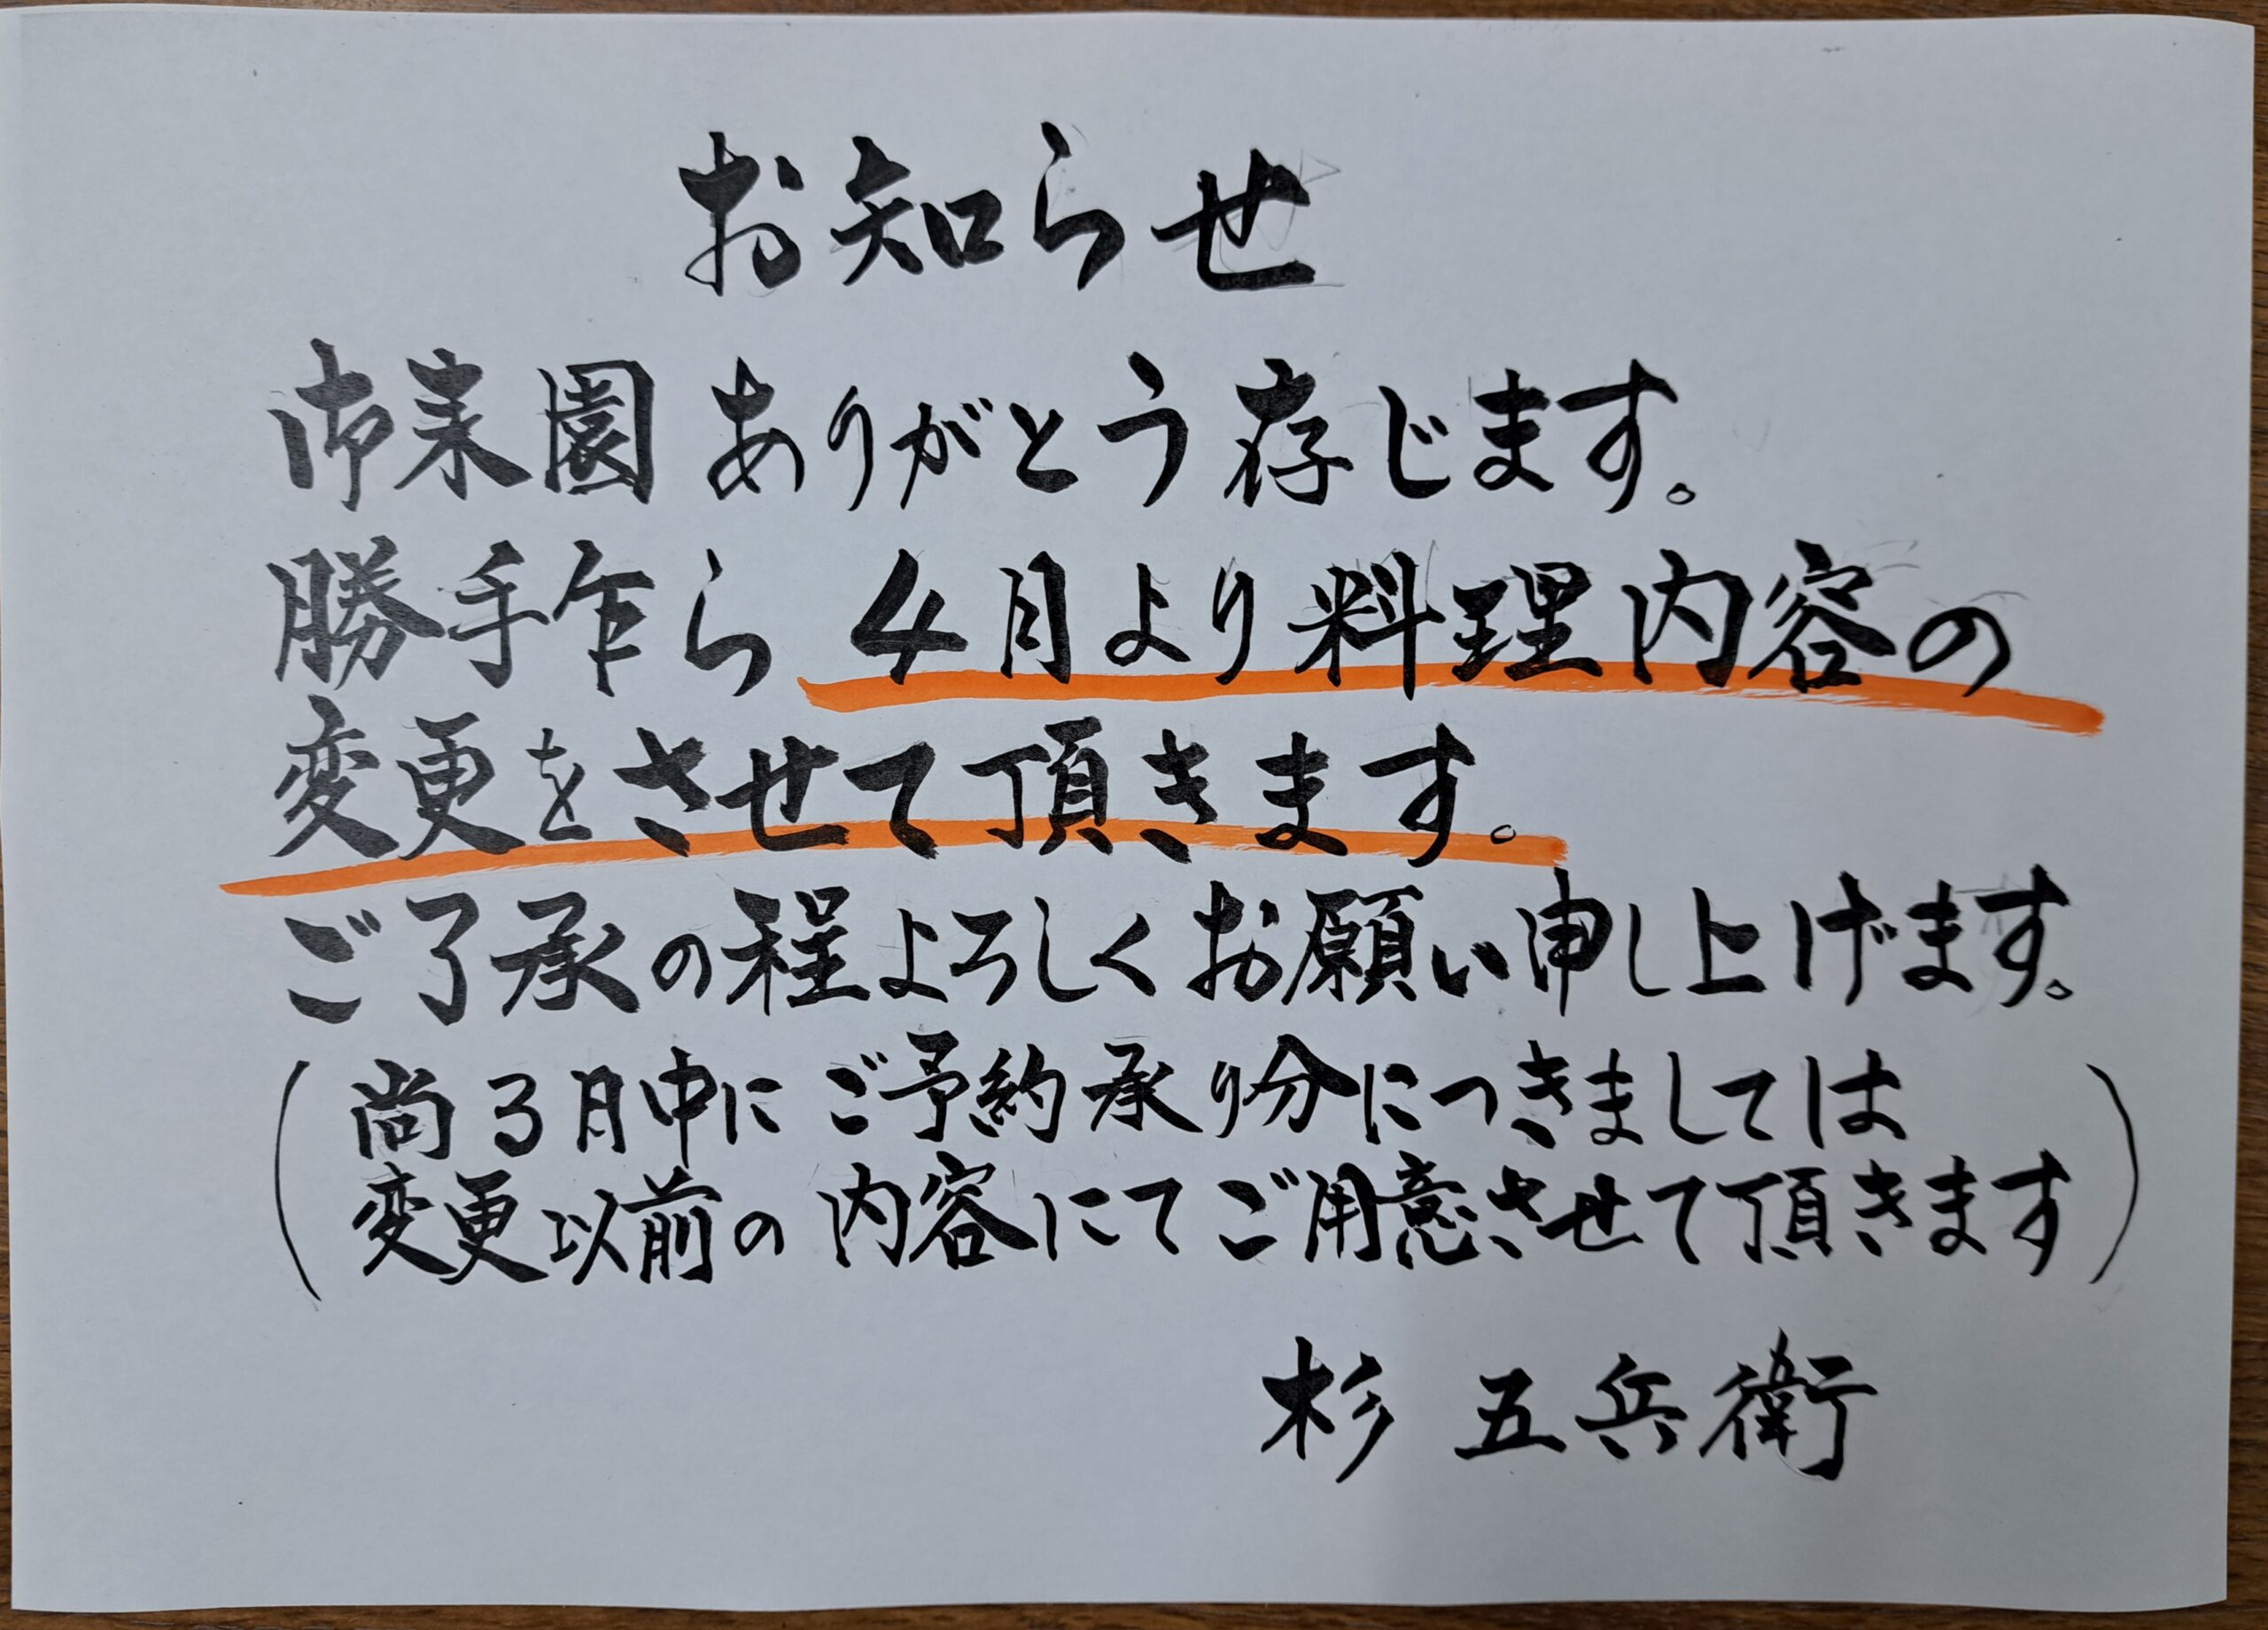 お知らせ
御来園ありがとう存じます。
勝手乍ら4月より料理内容の
変更をさせて頂きます。
ご了承の程よろしくお願い申し上げます。
(尚3月中にご予約承り分につきましては
変更以前の内容にてご用意させて頂きます)
杉五兵衛